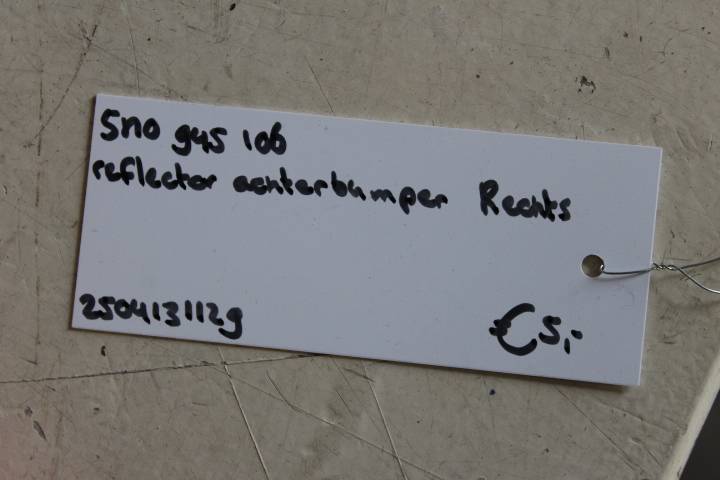 5N0 945 106
reflector achterbumper Rechts
250413112g
€5,-